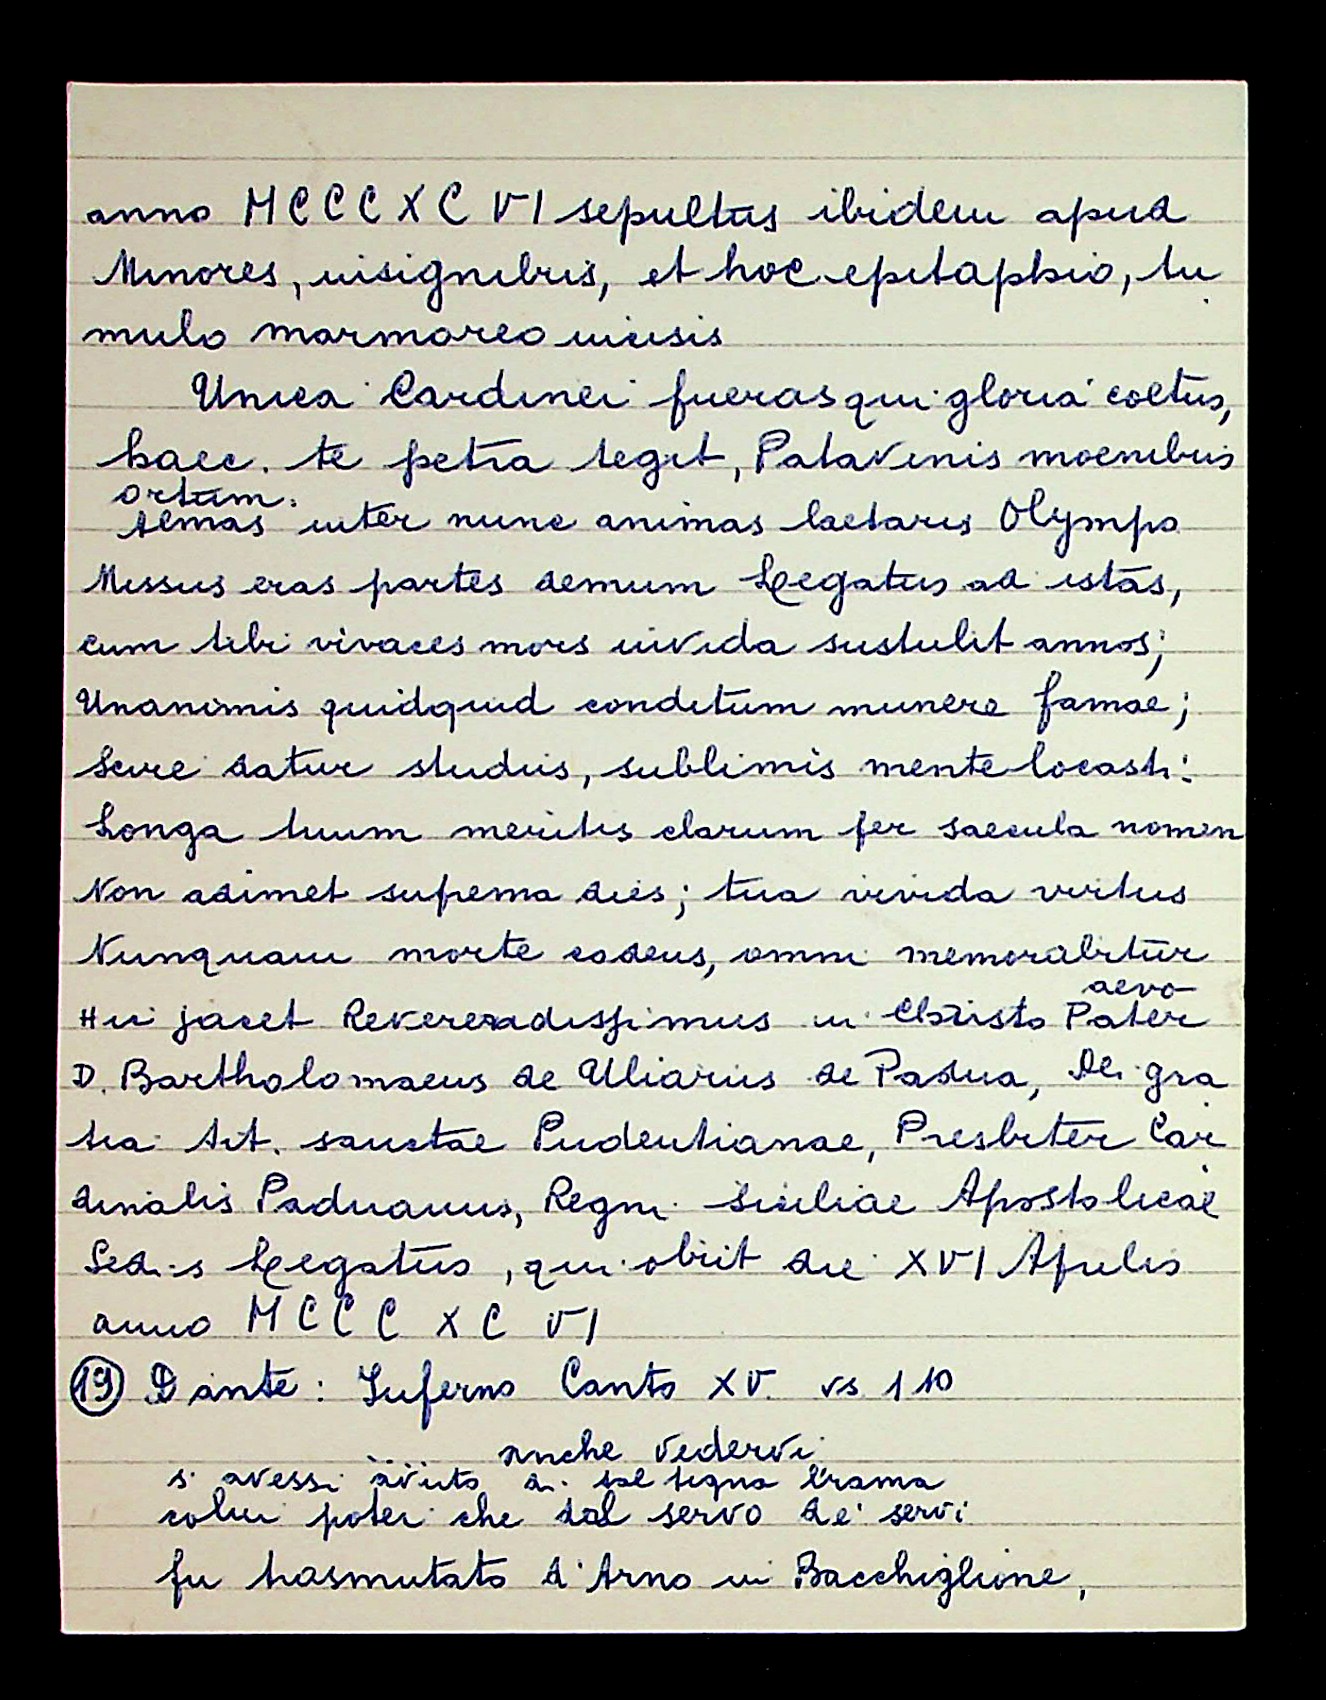 anno MCCCXCVI sepultus ibidem apud
Minores, insignibus, et hoc epitaphio, tu
mulo marmoreo incisis
Unica Cardinei fueras qui gloria coetus,
haec te petra teget, Patavinis moenibus
ortum.
Almas inter nunc animas laetaris Olympo
Missus eras partes demum Legatus ad istas,
cum tibi vivaces mors invida sustulit annos;
Unanimis quidquid conditum munere famae;
Scire datur studiis, sublimis mente locasti:
Longa tuum meritis clarum fer saecula nomen
Non adimet suprema dies; tua vivida virtus
Nunquam morte cadens, omni memorabitur
aevo
Hic jacet Reverendissimus in Christo Pater
D. Bartholomaeus de Uliariis de Padua, Dei gra
tia tit. sanctae Pudentianae, Presbiter Car
dinalis Paduanus, Regni Siciliae Apostolicae
Sedis Legatus, qui obiit die XVI Aprilis
anno MCCCXCVI
19 Dante: Inferno Canto XV. vs 110
anche vedervi
s'avessi avuto di tal tigna brama
colui potei che dal servo de' servi
fu trasmutato d'Arno in Bacchiglione,